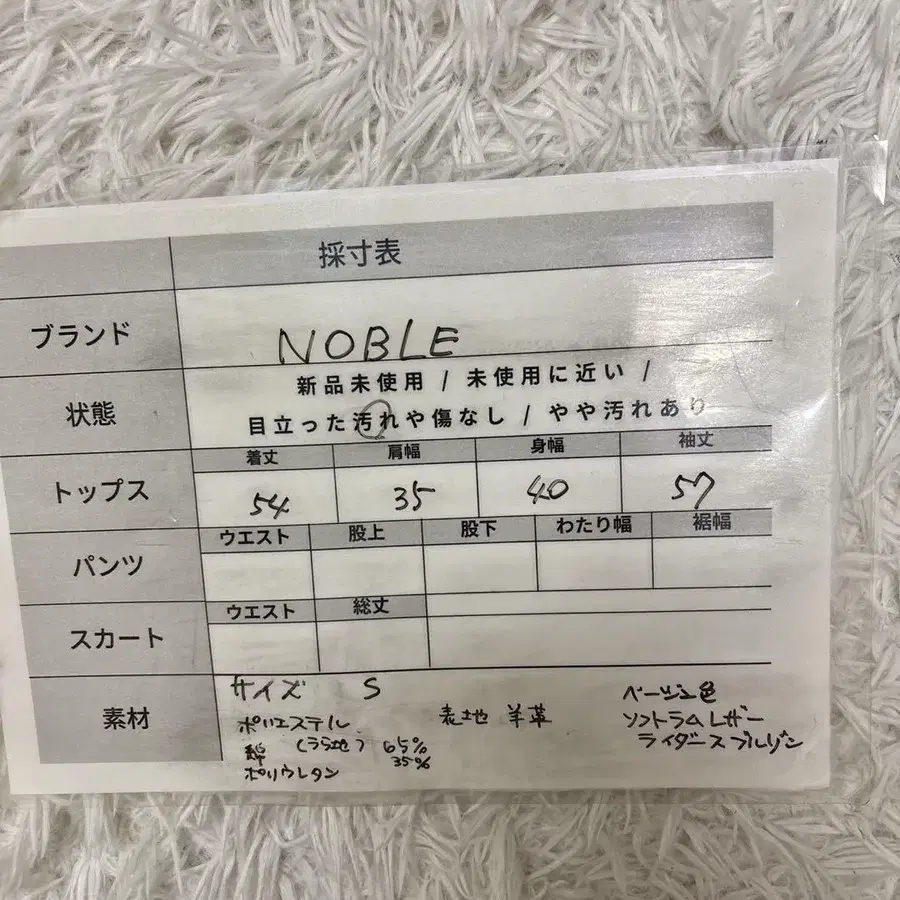 採寸表
ブランド
NOBLE
状態
新品未使用 / 未使用に近い /
目立った汚れや傷なし / やや汚れあり
トップス
着丈 肩幅 身幅 袖丈
54 35 40 57
パンツ
ウエスト 股上 股下 わたり幅 裾幅
スカート
ウエスト 総丈
素材
サイズ S
ポリエステル
綿 (うら地) 65%
35%
ポリウレタン
表地 羊革
ベージュ色
ソフトラムレザー
ライダースブルゾン